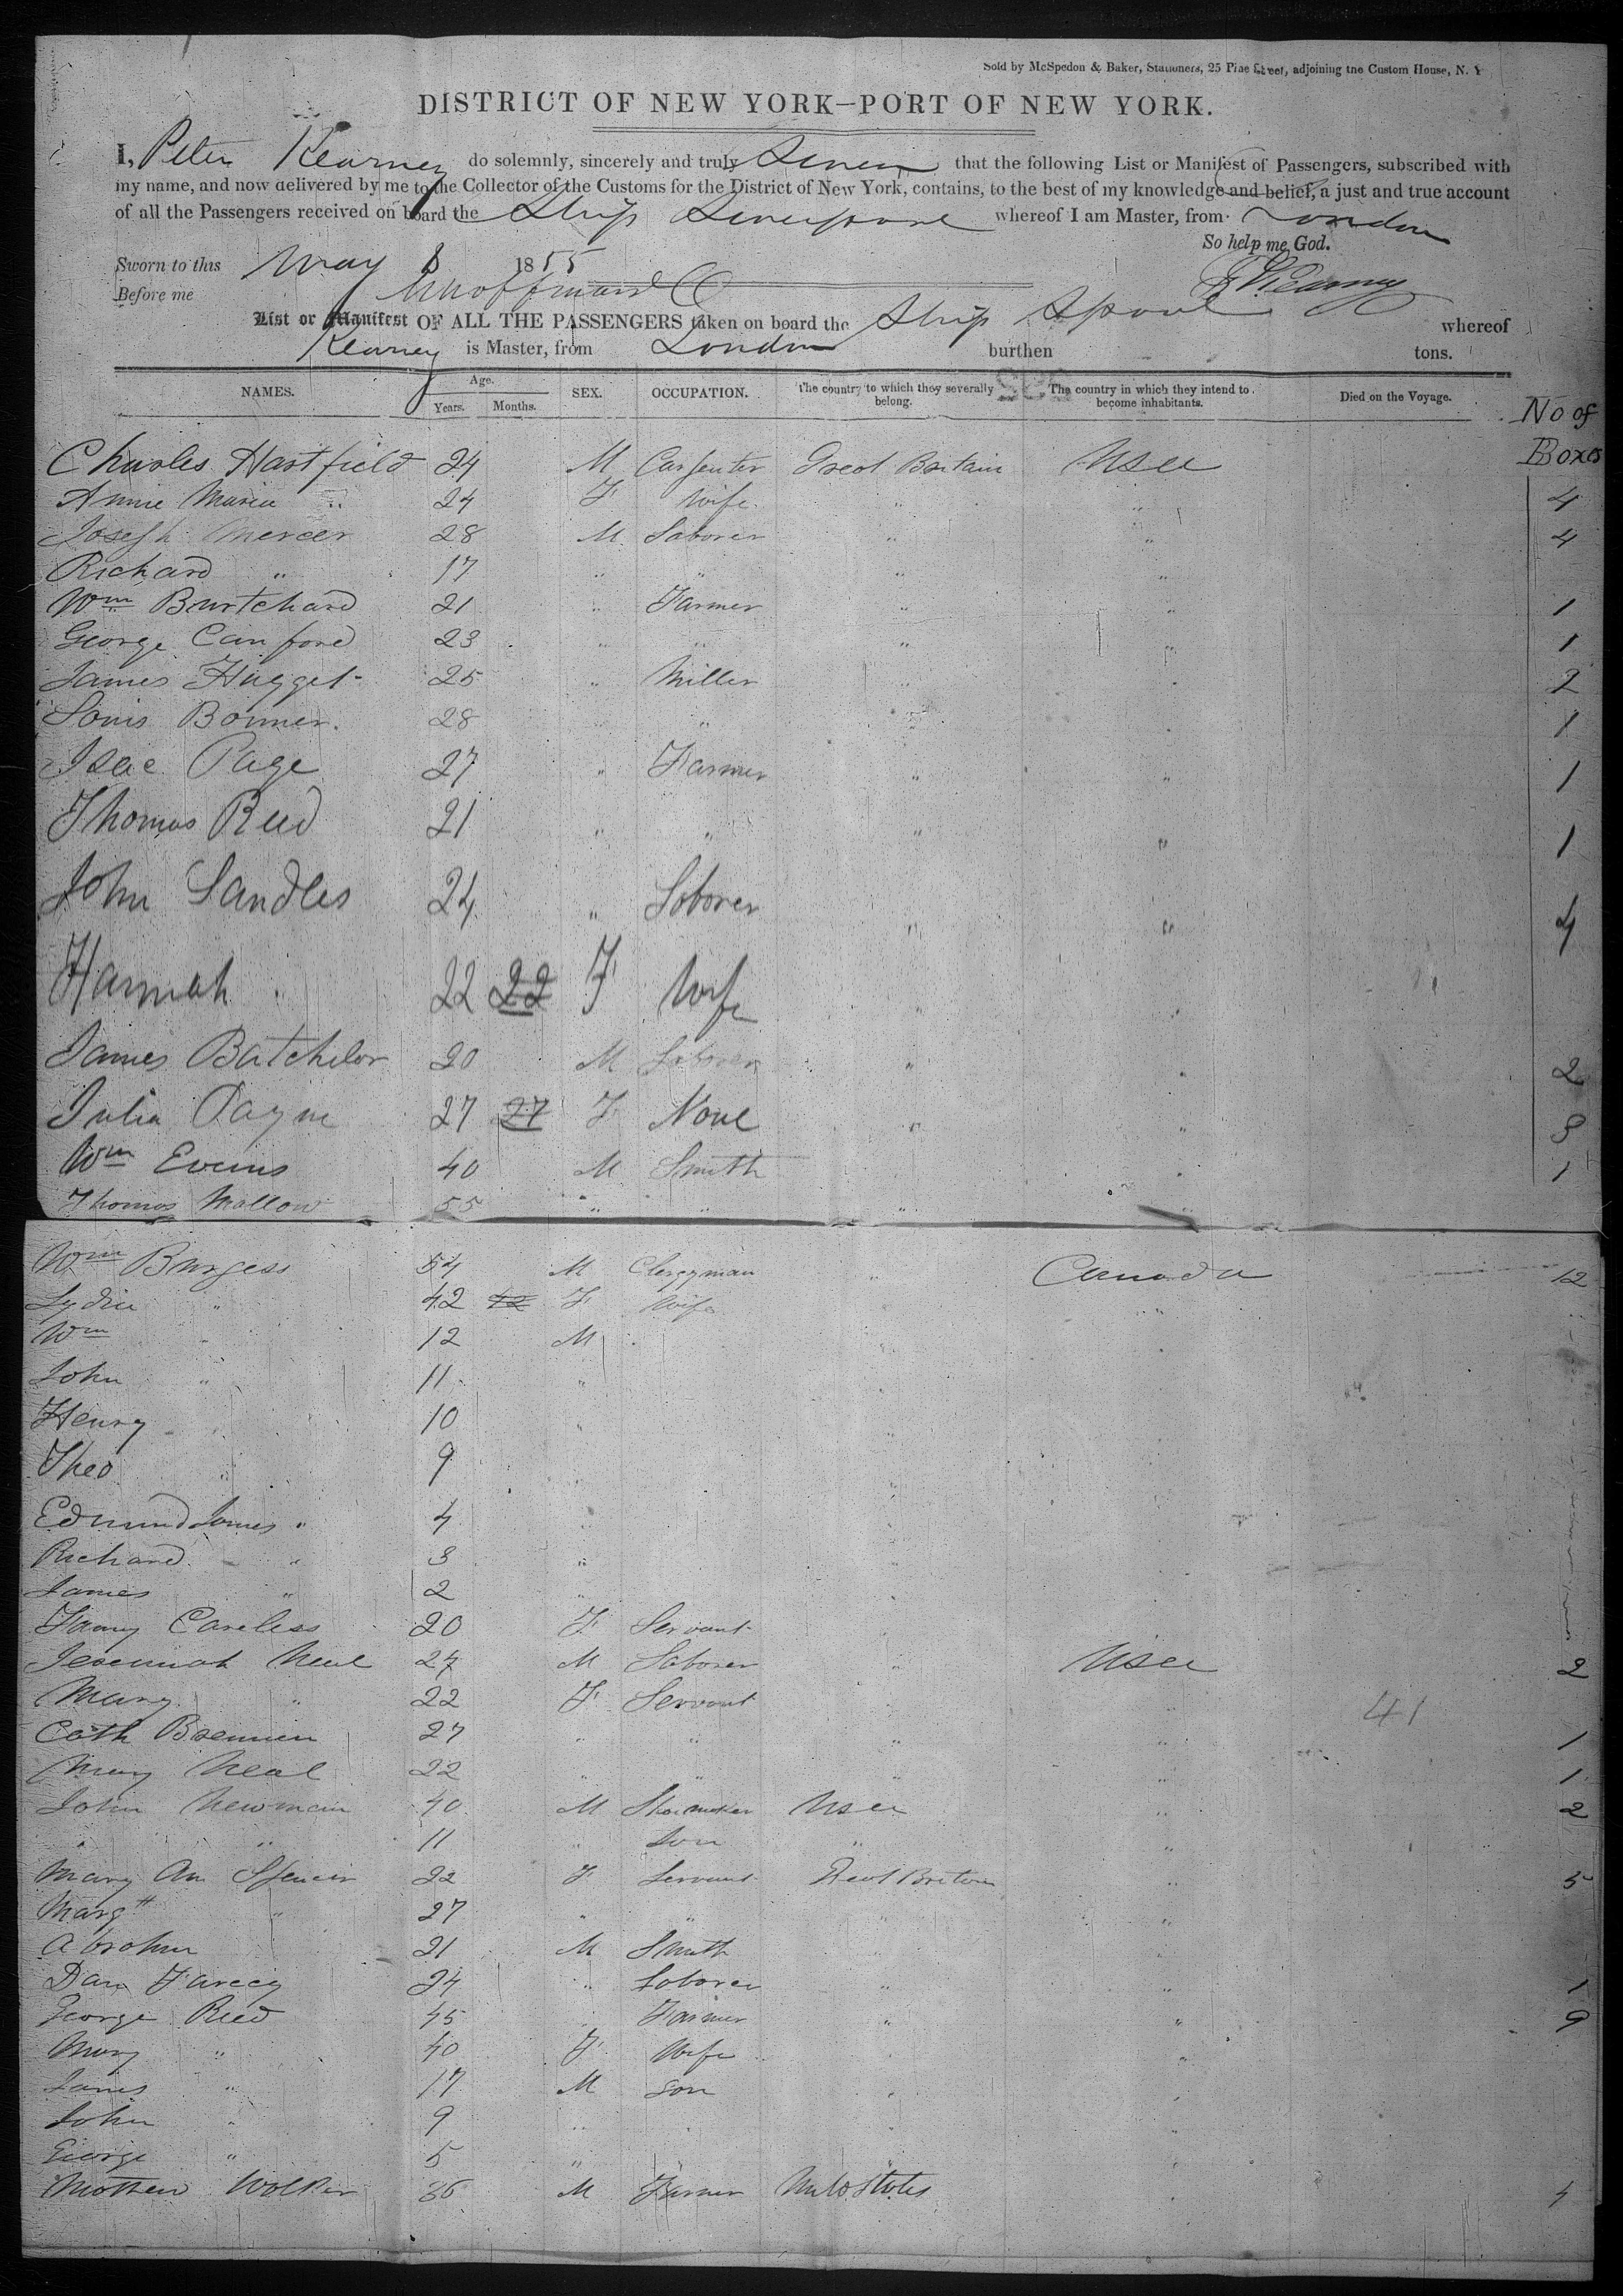 Sold by McSpedon & Baker, Stationers, 25 Pine Street, adjoining the Custom House, N. Y
DISTRICT OF NEW YORK—PORT OF NEW YORK.
I, Peter Kearney do solemnly, sincerely and truly that the following List or Manifest of Passengers, subscribed with
my name, and now delivered by me to the Collector of the Customs for the District of New York, contains, to the best of my knowledge and belief, a just and true account
of all the Passengers received on board the Ship whereof I am Master, from London
So help me God.
Sworn to this May 8 1855 P Kearney
Before me
List or Manifest OF ALL THE PASSENGERS taken on board the Ship whereof
Kearney is Master, from London burthen tons.
NAMES. Age. Years. Months. SEX. OCCUPATION. The country to which they severally belong. The country in which they intend to become inhabitants. Died on the Voyage. No of Boxes
Charles Hartfield 24 M Carpenter Great Britain Usa
Annie Maria " 24 F Wife " " 4
Joseph Mercer 28 M Laborer " " 4
Richard " 17 " " " "
Wm Burtchard 21 " Farmer " " 1
George Canford 23 " " " " 1
James Hugget 25 " Miller " " 2
Louis Bonner 28 " " " " 1
Isac Page 27 " Farmer " " 1
Thomas Reed 21 " " " " 1
John Sandles 24 " Laborer " " 4
Hannah " 22 22 F Wife
James Batchelor 20 M Laborer " " 2
Julia Payne 27 27 F None " " 3
Wm Evans 40 M Smith " 1
Thomas Mallow 55 " " " "
Wm Burgess 54 M Clergyman " Canada 12
Lydia " 42 42 F Wife "
Wm " 12 M
John " 11 "
Henry " 10 "
Theo " 9
Edmund James " 4 "
Richard " 3 "
James " 2 "
Fanny Careless 20 F Servant
Jeremiah Neal 24 M Laborer " Usa 2
Mary " 22 F Servant " "
41
Cath Brennen 27 " " " " 1
Mary Neal 22 " " " " 1
John Newman 40 M Shoemaker Usa " 2
" " 11 " Son " "
Mary Ann Spencer 22 F Servant Great Britain " 5
Margt " 27 " " " "
Abrahm 21 M Smith "
Dan 24 " Laborer " " 1
George Reed 45 " Farmer " " 9
Mary " 40 F Wife " "
James " 17 M Son " "
John " 9 " " "
George " 5 " "
Mathew Walker 36 M Farmer United States " 4